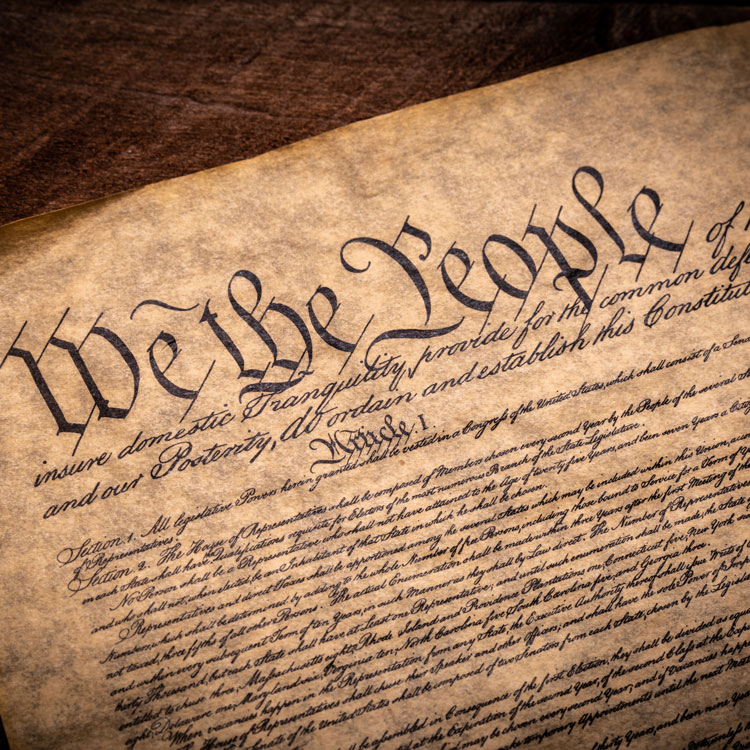 We the People of
insure domestic Tranquility, provide for the common
and our Posterity, do ordain and establish this
Article. I.
Section 1. All legislative Powers herein granted shall be vested in a Congress of the United States, which shall consist of a
of Representatives.
Section 2. The House of Representatives shall be composed of Members chosen every second Year by the People of the several
in each State shall have Qualifications requisite for Electors of the most numerous Branch of the State Legislature.
No Person shall be a Representative who shall not have attained to the Age of twenty five Years, and been seven Years a
and who shall not, when elected, be an Inhabitant of that State in which he shall be chosen.
Representatives and direct Taxes shall be apportioned among the several States which may be included within this Union,
Numbers, which shall be determined by adding to the whole Number of free Persons, including those bound to Service for a Term of
not taxed, three fifths of all other Persons. The actual Enumeration shall be made within three Years after the first Meeting of the
and within every subsequent Term of ten Years, in such Manner as they shall by Law direct. The Number of Representatives
thirty Thousand, but each State shall have at Least one Representative; and until such enumeration shall be made, the State
entitled to chuse three, Massachusetts eight, Rhode Island and Providence Plantations one, Connecticut five, New York
eight, Delaware one, Maryland six, Virginia ten, North Carolina five, South Carolina five, and Georgia three.
When vacancies happen in the Representation from any State, the Executive Authority thereof shall issue Writs of
The House of Representatives shall chuse their Speaker and other Officers; and shall have the sole Power of
Senate of the United States shall be composed of two Senators from each State, chosen by the
be assembled in Consequence of the first Election, they shall be divided as
at the Expiration of the second Year, of the second Class at the
may be chosen every second Year; and if Vacancies
temporary Appointments until the next
Years, and been nine